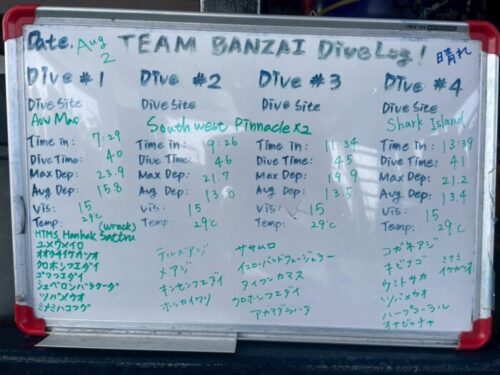 Date. Aug 2 TEAM BANZAI DiveLog! 晴れ
Dive #1
Dive Site
Aow Mao
Time in: 7:29
Dive Time: 40
Max Dep: 23.9
Avg Dep: 15.8
Vis: 15
Temp: 29℃
(wreck)
HTMS. Hanhak Sattru
ユメウメイロ
オオクチイケカツオ
クロホシフエダイ
ゴマフエダイ
シェベロンバラクーダ
ツバメウオ
ミナミハコフグ
Dive #2
Dive Site
South west Pinnacle x2
Time in: 9:26
Dive Time: 46
Max Dep: 21.7
Avg Dep: 13.8
Vis: 15
Temp: 29℃
テルメアジ
メアジ
キンセンフエダイ
ホシカイワリ
Dive #3
Dive Site
Time in: 11:34
Dive Time: 45
Max Dep: 19.9
Avg Dep: 13.5
Vis: 15
Temp: 29℃
ササムロ
イエローバンドフュージュラー
タイワンカマス
クロホシフエダイ
アカマダラハタ
Dive #4
Dive Site
Shark Island
Time in: 13:39
Dive Time: 41
Max Dep: 21.2
Avg Dep: 13.4
Vis: 15
Temp: 29℃
コガネアジ
キビナゴ
ミナミイケカツオ
ウミトサカ
ツバメウオ
ハープコーラル
オヤビッチャ